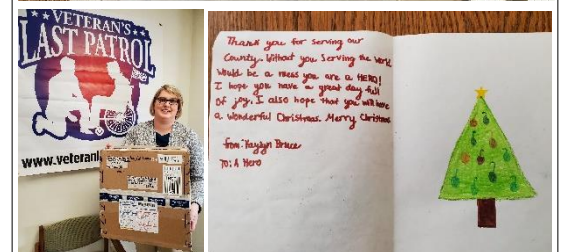 VETERAN'S
LAST PATROL
www.veteranl
Thank you for serving our
County. Without you serving the world
would be a mess you are a HERO!
I hope you have a great day full
of joy. I also hope that you will have
a wonderful Christmas. Merry Christmas
from: Kaylyn Bruce
To: A Hero